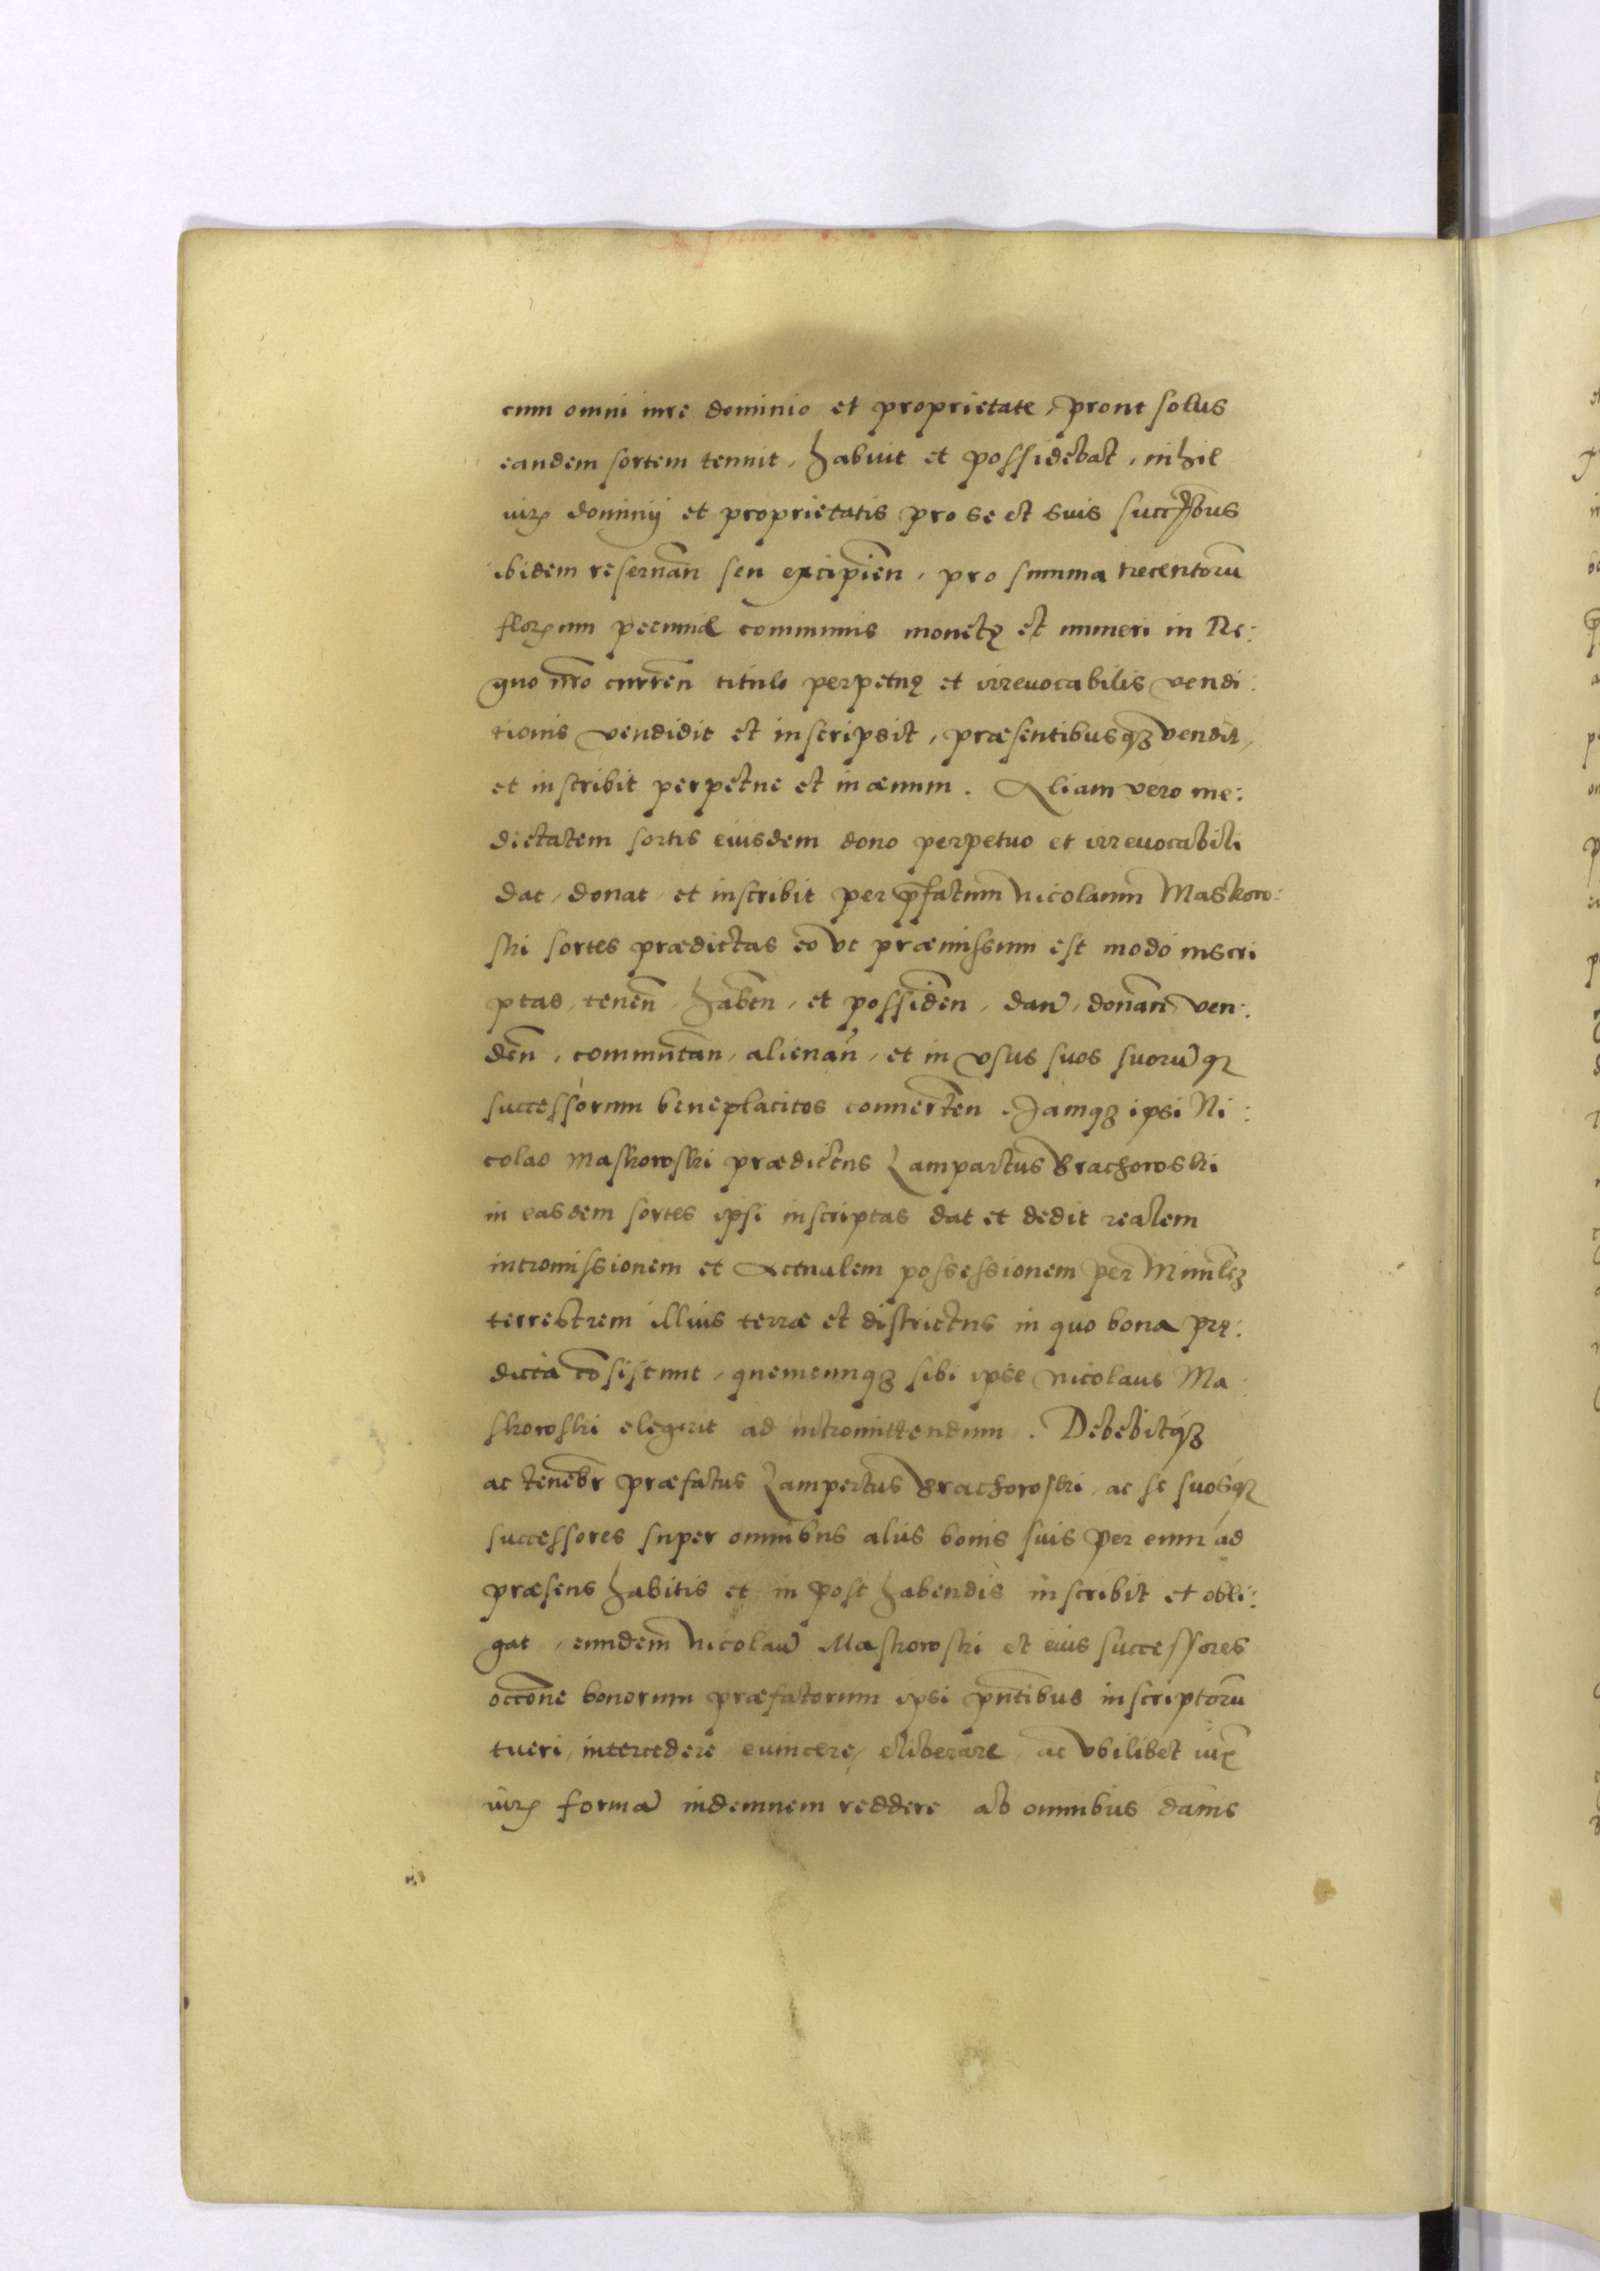 cum omni iure dominio et proprietate, prout solus
eandem sortem tenuit, habuit et possidebat, nihil
iuris dominij et proprietatis pro se et suis succ̄ribus
ibidem reseruan̄ seu excipien̄, pro summa trecentorū
florenum pecuniæ communis monetę et numeri in Re:
gno nr̄o curren̄ titulo perpetuę et irreuocabilis vendi:
tionis vendidit et inscripsit, præsentibusqȝ vendit,
et inscribit perpetue et in æuum. Aliam vero me:
dietatem sortis eiusdem dono perpetuo et irreuocabili
dat, donat, et inscribit per p̄fatum Nicolaum Maskow:
ski sortes prædictas eo vt præmissum est modo inscri
ptas, tenen̄, haben̄, et possiden̄, dan̄, donan̄, ven:
den̄, commutan̄, alienan̄, et in vsus suos suorūqȝ
successorum beneplacitos conuerten̄. Iamqȝ ipsi Ni:
colao Maskowski prædictus Lampartus Grachowski
in easdem sortes ipsi inscriptas dat et dedit realem
intromissionem et Actualem possessionem per Minr̄lēȝ
terrestrem illius terræ et districtus in quo bona prę:
dicta cōsistunt, quemcunqȝ sibi ipse Nicolaus Ma:
skowski elegerit ad intromittendum. Debebitqȝ
ac tenebr̄ præfatus Lampertus Grachowski, ac se suosqȝ
successores super omnibus aliis bonis suis per eum ad
præsens habitis et in post habendis inscribit et obli:
gat, eundem Nicolaū Maskowski et eius successores
occōne bonorum præfatorum ipsi pn̄tibus inscriptorū
tueri, intercedere, euincere, eliberare, ac vbilibet iux̄
iuris formā indemnem reddere ab omnibus dam̄s